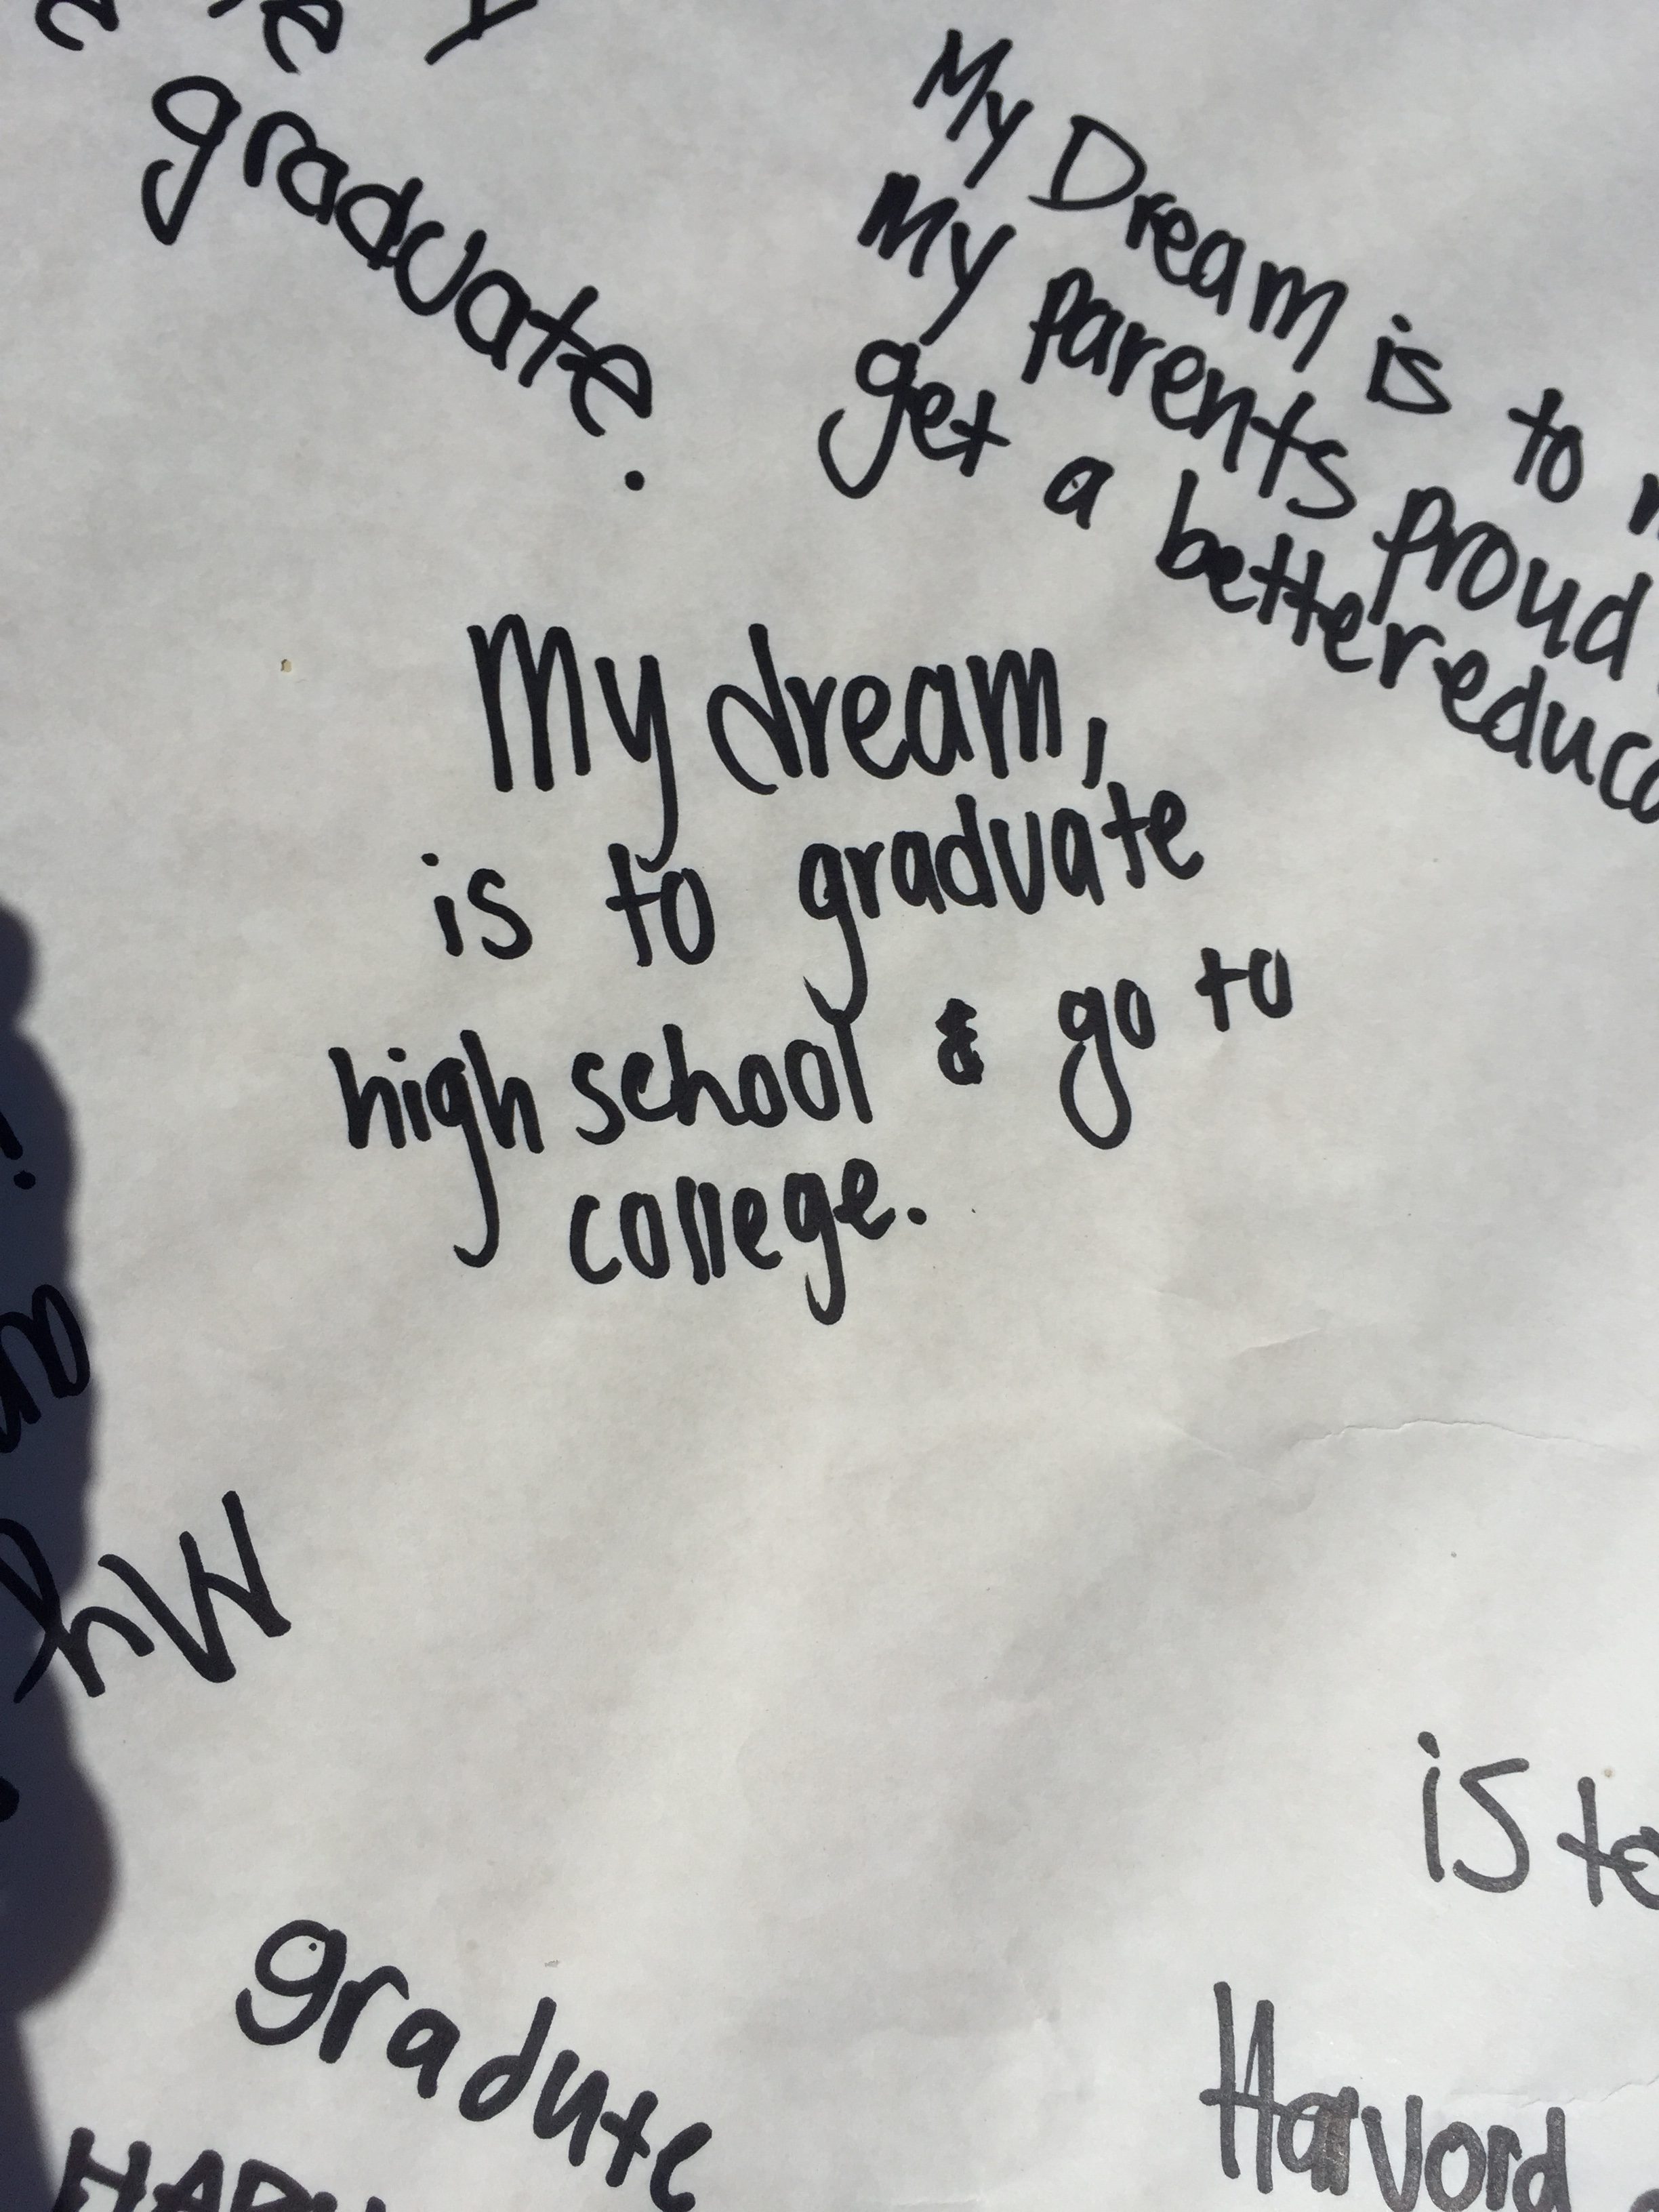 graduate.
My Dream is to
My parents proud
get a better educa
My dream,
is to graduate
high school & go to
college.
My
is to
gradute
Harvord
HARV